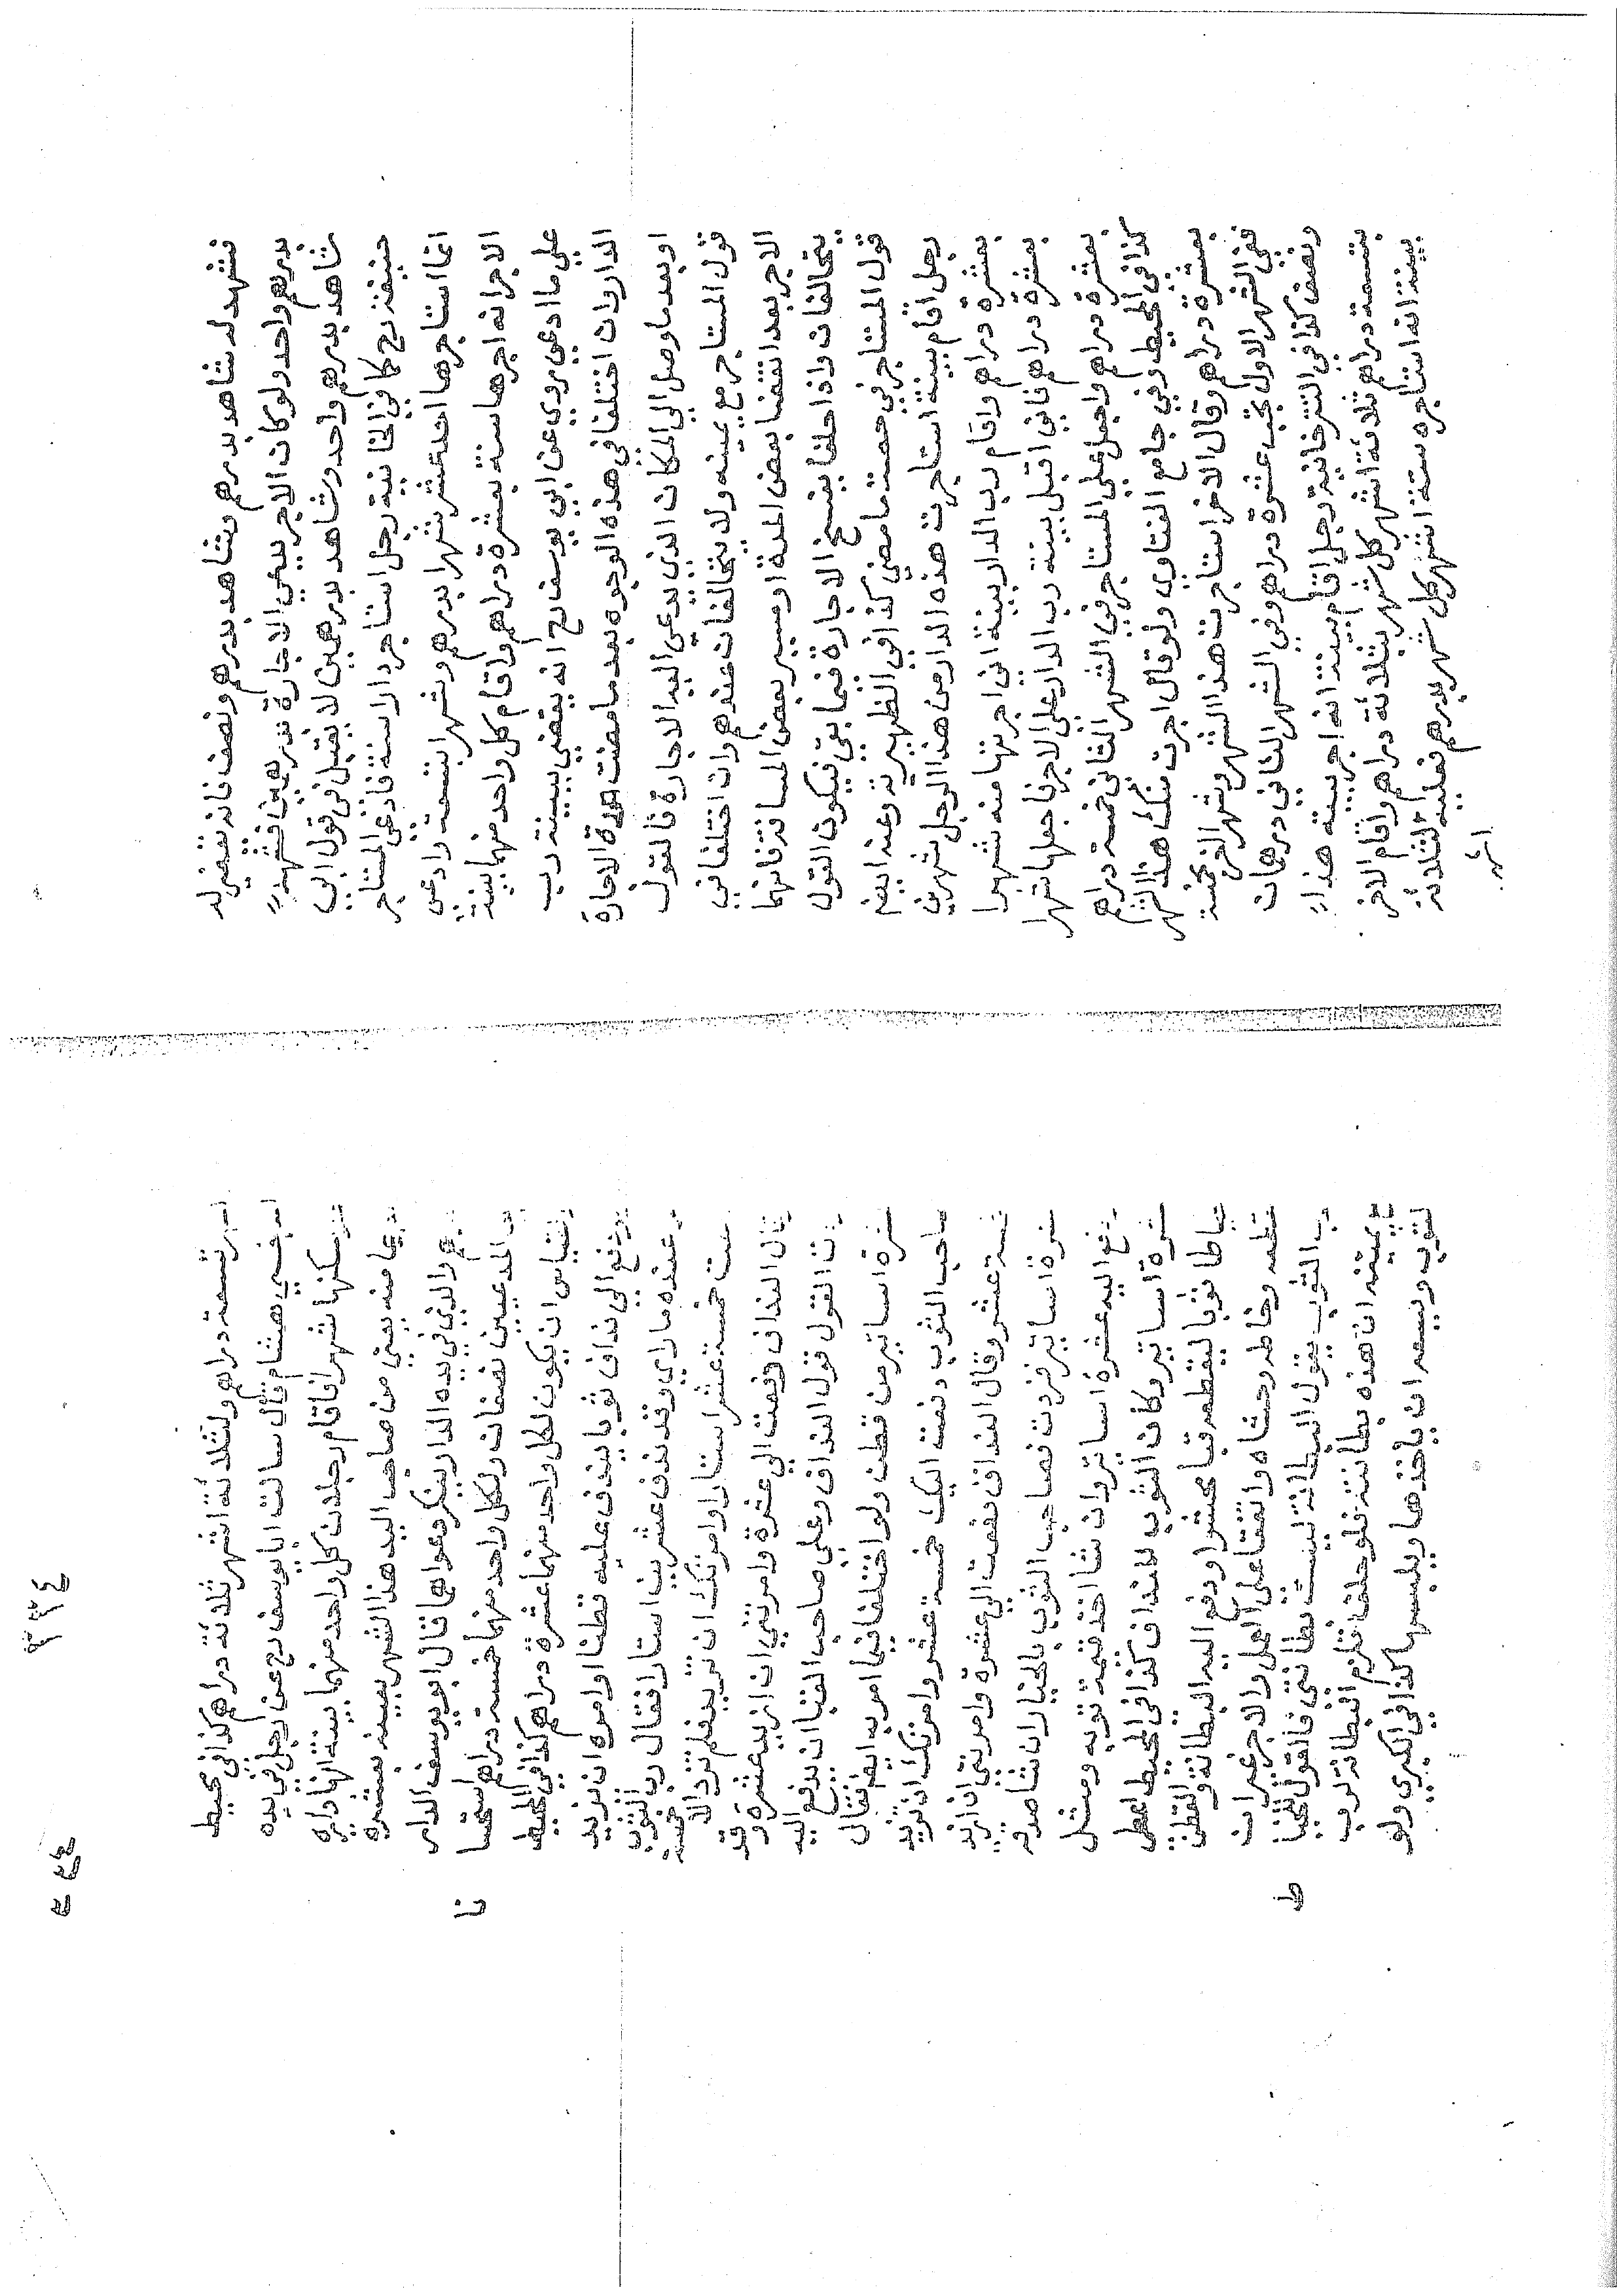 فشهد له شاهد بدرهم وشاهد بدرهم ونصف فانه تقضي له
بدرهم واحد ولو كان الاجر يدعي الاجارة بدرهمين فشهد
شاهد بدرهم واحد وشاهد بدرهمين لا يقبل في قول ابي
حنيفة رح كما في الخانية رجل استاجر دارا سنة فادعى المستاجر
انما استاجرها احد عشر شهرا بدرهم وشهرا بتسعة وادعى
الاجر انه اجرها سنة بعشرة دراهم واقام كل واحد منهما بينة
على ما ادعى روي عن ابي يوسف رح انه يقضي ببينة رب
الدار وان اختلفا في هذه الوجوه بعد ما مضت مدة الاجارة
او بعد ما وصل الى المكان الذي يدعي اليه الاجارة فالقول
قول المستاجر مع يمينه ولا يتحالفان عندهم وان اختلفا في
الاجر بعد انقضا بعض المدة او مسير بعض المسافة فانهما
يتحالفان واذا حلفا يفسخ الاجارة فيما بقي فيكون القول
قول المستاجر في حصة ما مضى كذا في الظهيرية وعنه ايضا
رجل اقام بينة استاجرت هذه الدار من هذا الرجل شهرين
بعشرة دراهم واقام رب الدار بينة اني اجرتها منه شهرا
بعشرة دراهم فاني اقبل بينة رب الدار على الاجر فاجعلها شهرا
بعشرة دراهم واجعل على المستاجر في الشهر الثاني خمسة دراهم
كذا في المحيط وفي جامع الفتاوى ولو قال اجرت منك هذا الشهر
بعشرة دراهم وقال الاخر استاجرت هذا الشهر وشهر اخر بخمسة
ففي الشهر الاول يجب عشرة دراهم وفي الشهر الثاني درهمان
ونصف كذا في التترخانية رجل اقام بينة انه اجر بيته هذا
بتسعة دراهم ثلاثة اشهر كل شهر بثلاثة دراهم واقام الاخر
بينة انه استاجره ستة اشهر كل شهر بدرهم فعليه للثلاثة
اشهر
تسعة دراهم ولثلاثة اشهر ثلاثة دراهم كذا في محيط
هشام قال سالت ابا يوسف رح عن رجل في يده
سكنها شهرا فاقام رجلان كل واحد منهما بينة انها داره
منه يعني من صاحب اليد هذا الشهر بعينه بعشرة
والذي في يده الدار ينكر دعواهما قال ابو يوسف الدار
المدعيين نصفان ولكل واحد منهما خمسة دراهم استحسا
نا
القياس ان يكون لكل واحد منهما عشرة دراهم كذا في المحيط
دفع الى نداف ثوبا يندف عليه قطنا وامره ان يزيد
عنده ما راى وقد ندف عشرين استارا فقال رب الثوب
خمسة عشر استارا وامرتك ان تزيد فلم تزد الا خمسة
قال النداف دفعت الي عشرة وامرتني ان ازيد عشرة وقد
القول قول النداف وعلى صاحب القبا ان يدفع اليه
عشرة اساتير من قطن ولو اختلفا فيما امر به ايضا فقال
صاحب الثوب دفعت اليك خمسة عشر وامرتك ان تزيد
خمسة عشر وقال النداف دفعت الي عشرة وامرتني ان ازيد
عشرة اساتير فزدت فصاحب الثوب بالخيار ان شا صدقه
ودفع اليه عشرة اساتير وان شا اخذ قيمة ثوبه ومثل
عشرة اساتير وكان الثوب للنداف كذا في المحيط اعطى
خياطا ثوبا ليقطعه قبا محشوا ودفع اليه البطانة والقطن
فقطعه وخاطه وحشاه واتفقا على العمل والاجر غير ان
رب الثوب يقول البطانة ليست بطانتي فالقول للخيا
ط
مع يمينه ان هذه بطانته فلو حلف تلزم البطانة لرب
الثوب ويسعه ان ياخذها ويلبسها كذا في الكبرى ولو